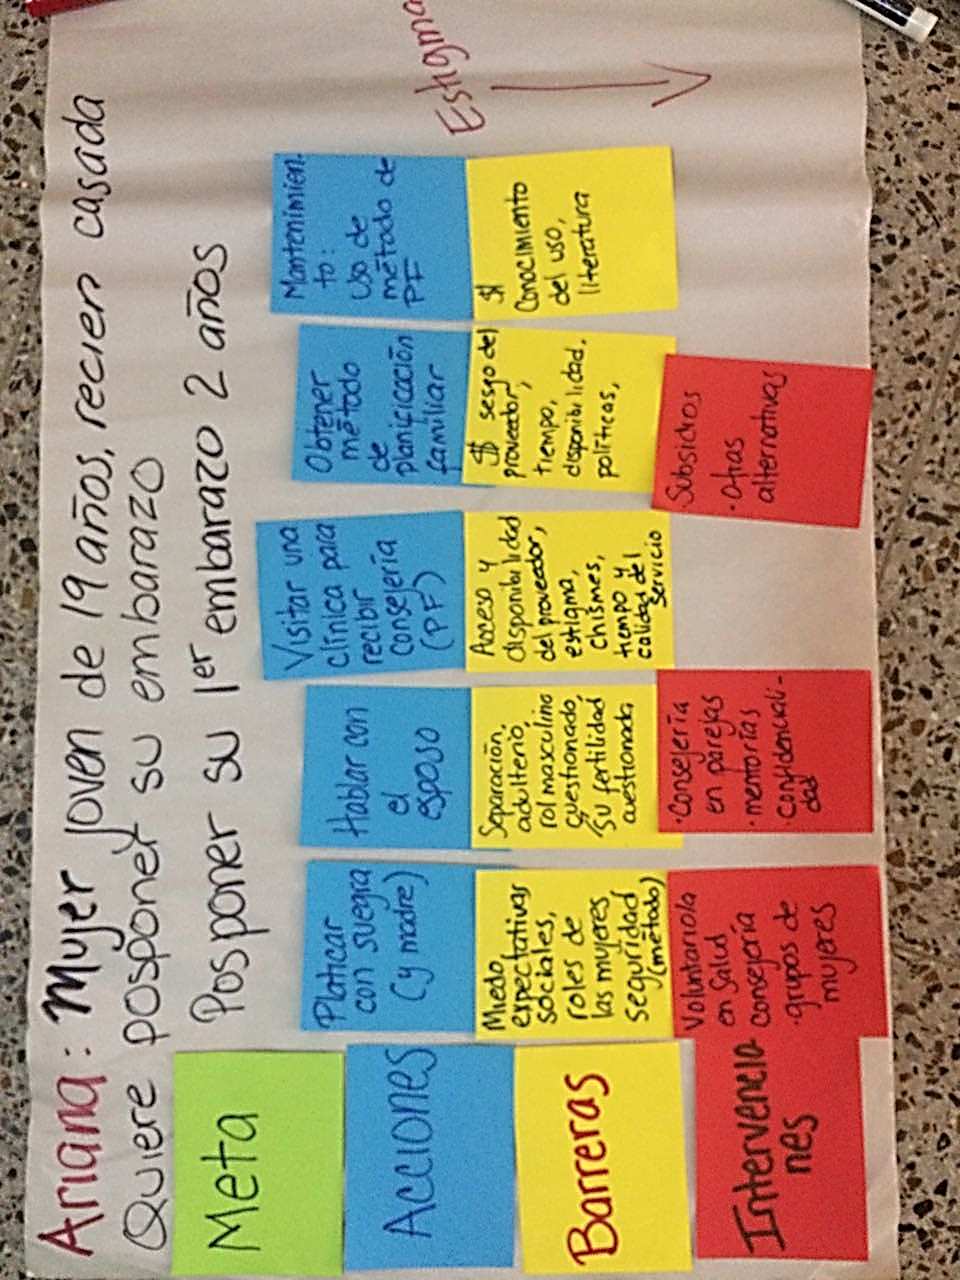 Ariana: Mujer joven de 19 años, recien casada
Quiere posponer su embarazo
Meta
Posponer su 1er embarazo 2 años
Acciones
Platicar
con suegra
(y madre)
Hablar con
el
esposo
Visitar una
clínica para
recibir
consejería
(PF)
Obtener
método
de
planificación
familiar
Mantenimien-
to:
Uso de
método de
PF
Barreras
Miedo,
expectativas
sociales,
roles de
las mujeres
seguridad
(método)
Separación,
adulterio,
rol masculino
cuestionado,
su fertilidad
cuestionada
Acceso y
disponibilidad
del proveedor,
estigma,
chismes,
tiempo y
calidad del
servicio
$ sesgo del
proveedor,
tiempo,
disponibilidad.
políticas,
$
Conocimiento
del uso,
literatura
Estigma
Intervencio
nes
Voluntariola
en Salud
consejería
·grupos de
mujeres
·Consejería
en parejas
·mentorías
·confidenciali-
dad
Subsidios
·Otras
alternativas